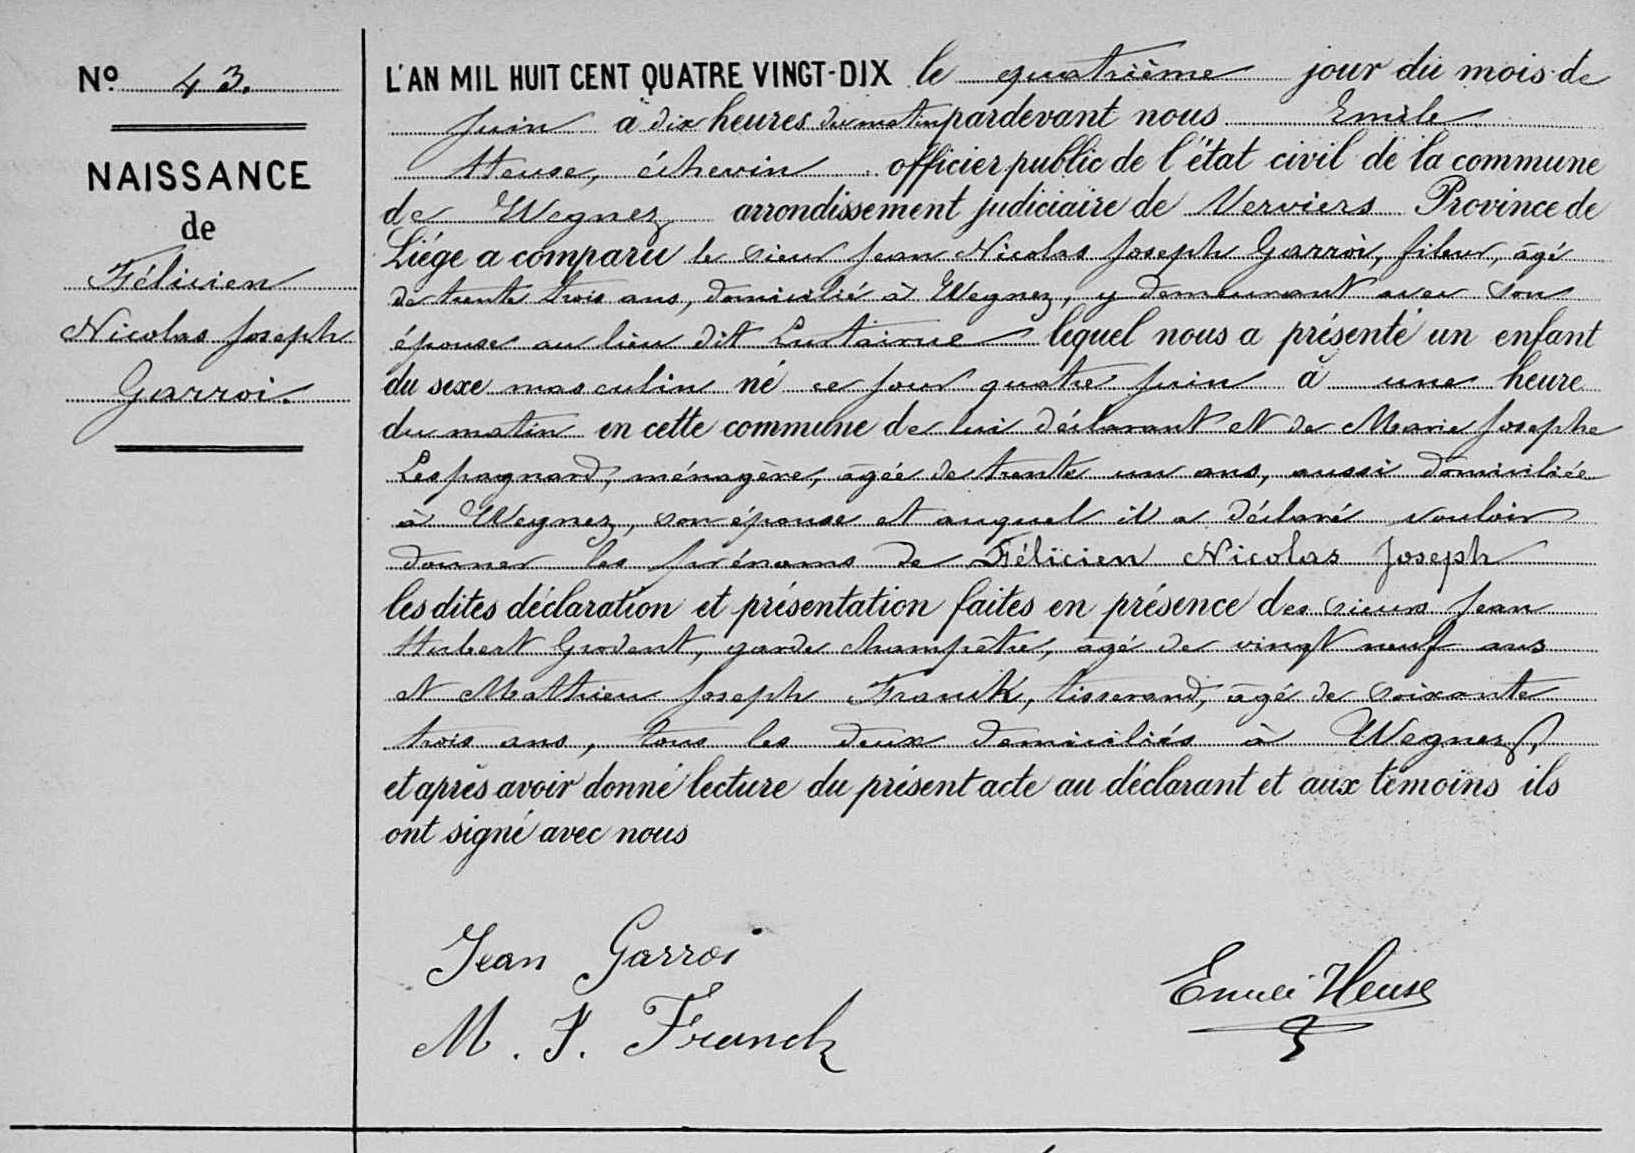 Nº 43.
NAISSANCE
de
Félicien
Nicolas Joseph
Garroi.
L'AN MIL HUIT CENT QUATRE VINGT-DIX le quatrième jour du mois de
Juin à dix heures du matin pardevant nous Emile
Heuse, échevin officier public de l'état civil de la commune
de Wegnez arrondissement judiciaire de Verviers Province de
Liége a comparu le sieur Jean Nicolas Joseph Garroi, fileur, âgé
de trente trois ans, domicilié à Wegnez, y demeurant avec son
épouse au lieu dit Purtaime lequel nous a présenté un enfant
du sexe masculin né ce jour quatre Juin à une heure
du matin en cette commune de lui déclarant et de Marie Josephe
Lespagnard, ménagère, âgée de trente un ans, aussi domiciliée
à Wegnez, son épouse et auquel il a déclaré vouloir
donner les prénoms de Félicien Nicolas Joseph
les dites déclaration et présentation faites en présence des sieurs Jean
Hubert Grodent, garde champêtre, âgé de vingt neuf ans
et Mathieu Joseph Franck, tisserand, âgé de soixante
trois ans, tous les deux domiciliés à Wegnez,
et après avoir donné lecture du présent acte au déclarant et aux témoins ils
ont signé avec nous
Jean Garroi
Emile Heuse
M. J. Franck